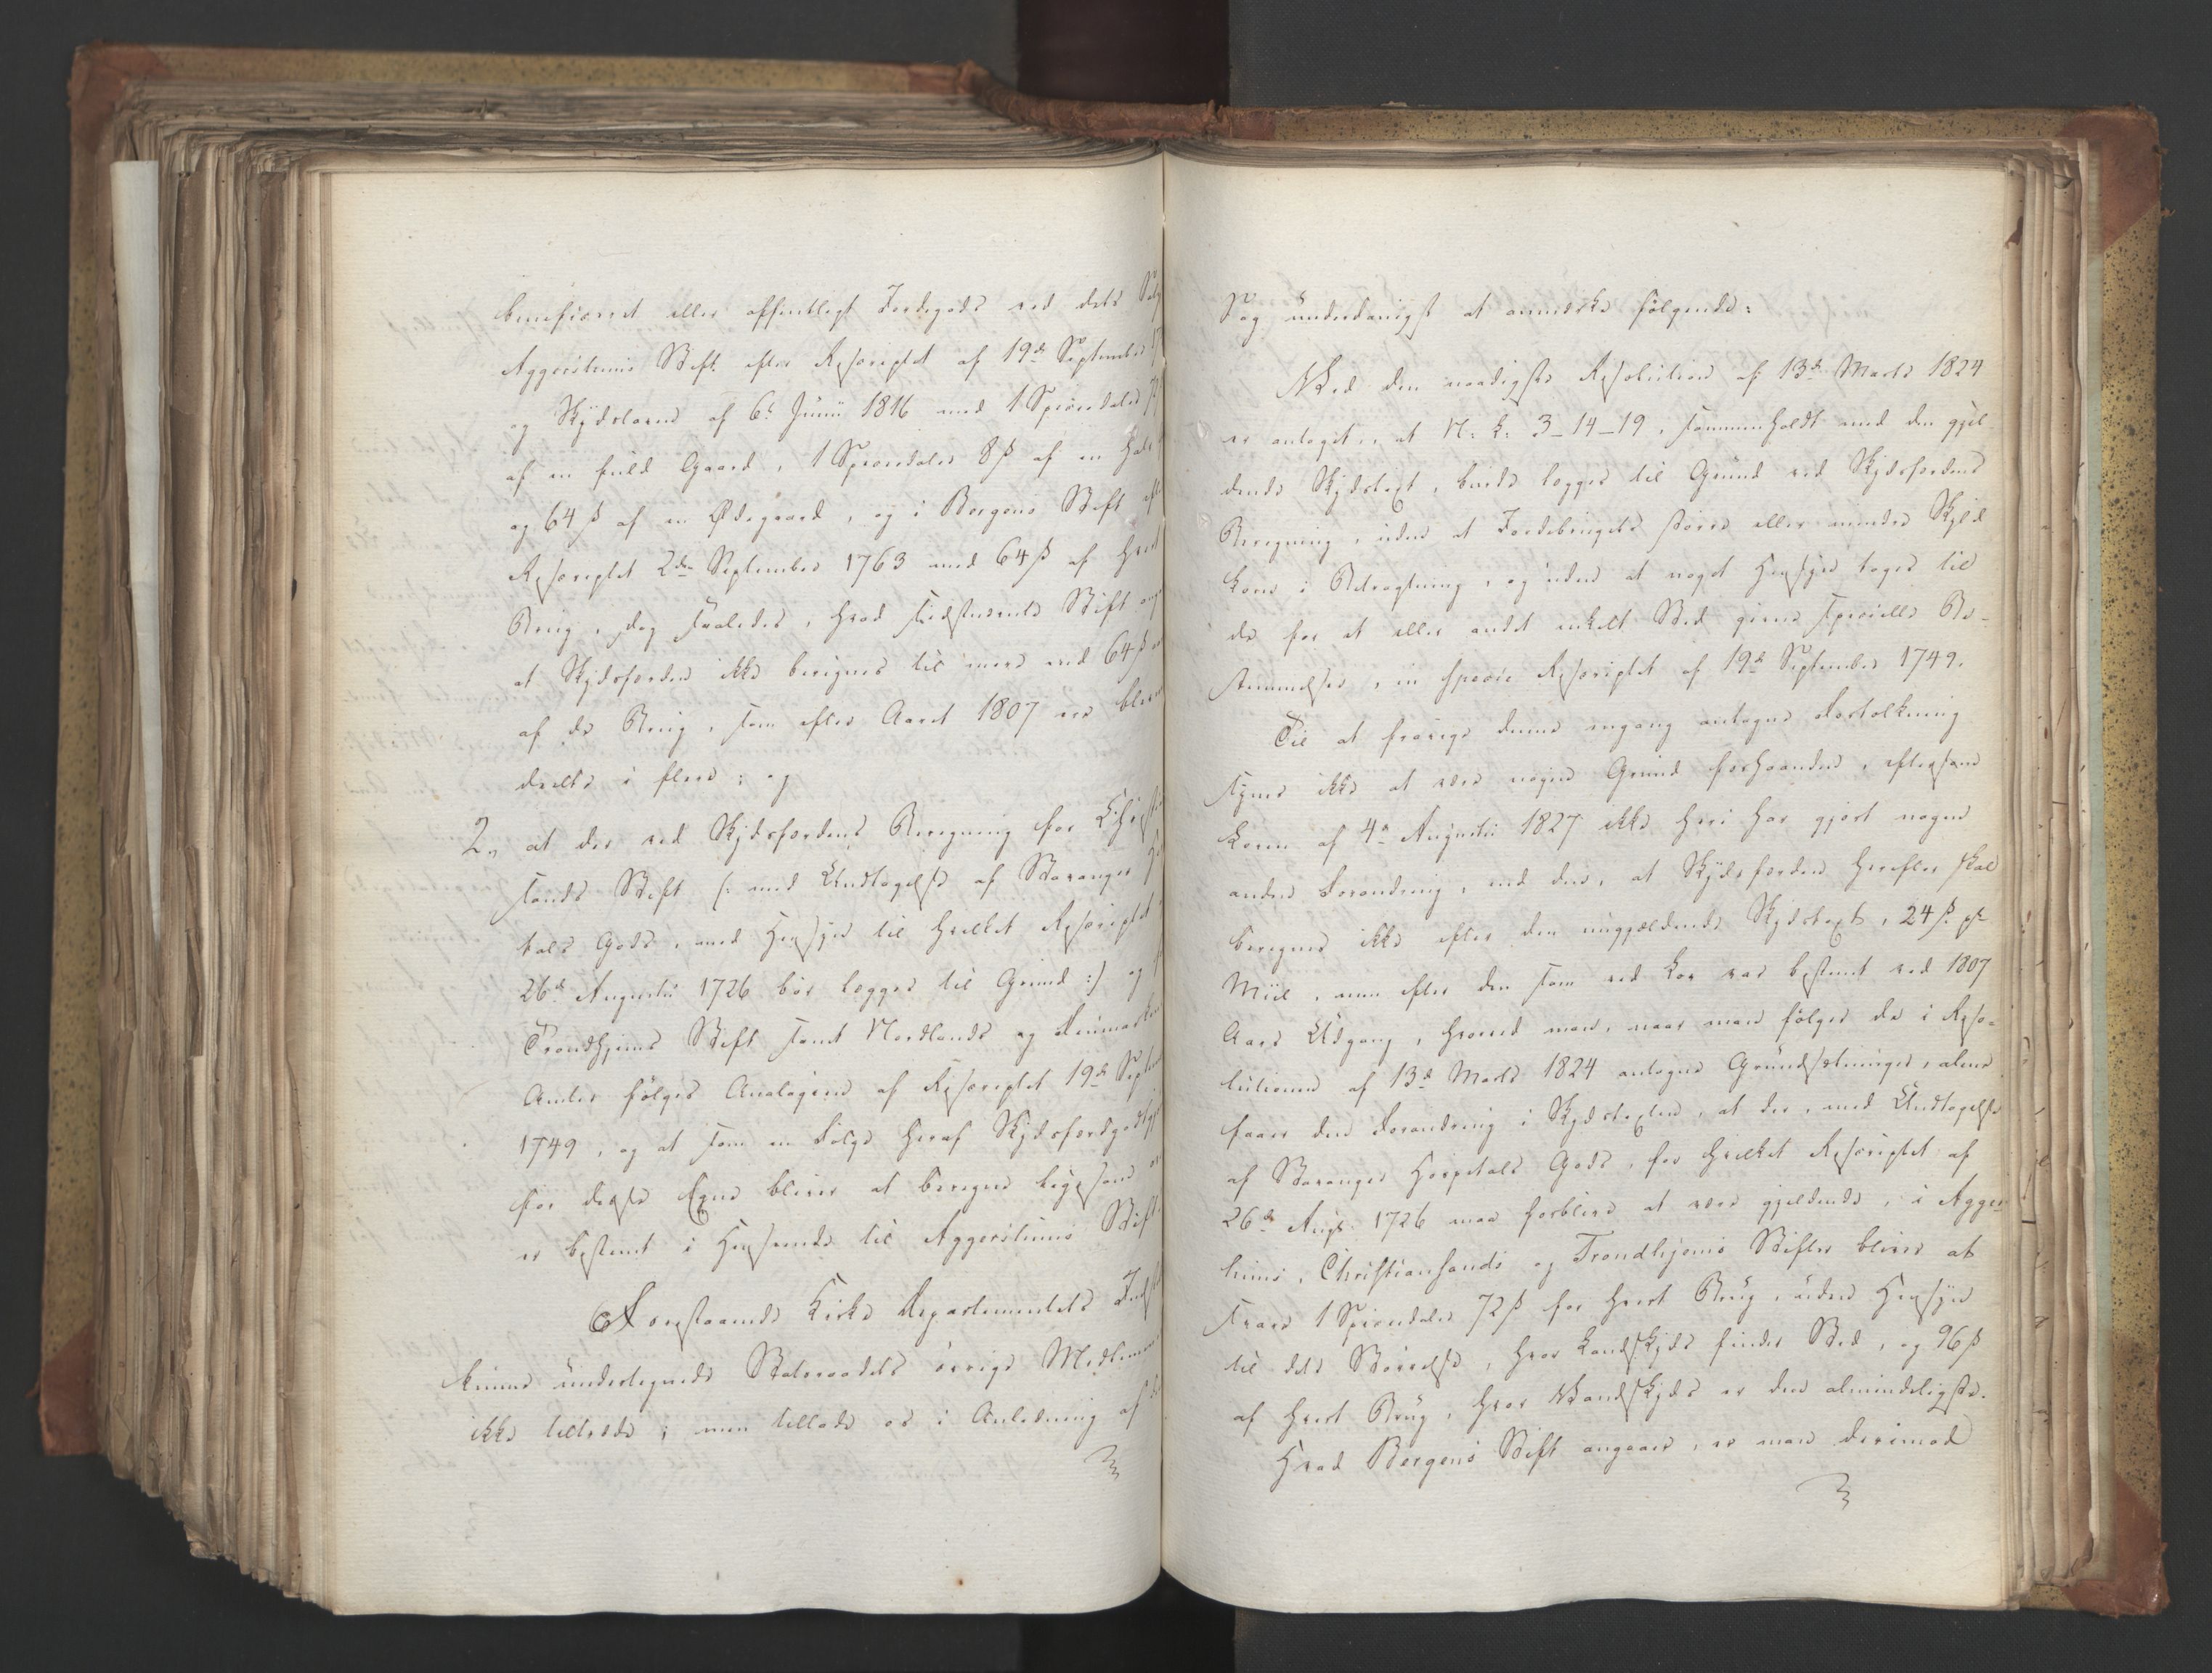 beneficeret eller offentligt Jordegods ved dets Salg
Aggershuus Stift efter Rescriptet af 19de September
og Skydsloven af 6te Junii 1816 med 1 Speciedaler
af en fuld Gaard, 1 Speciedaler 8 ß af en halv
og 64 ß af en Ødegaard, og i Bergens Stift efter
Rescriptet 2den September 1763 med 64 ß af hvert
Brug, dog saaledes, hvad sidstnævnte Stift
at Skydsfærden ikke beregnes til mere end 64 ß
af de Brug, som efter Aaret 1807 ere blevne
deelte i flere; og
2, at der ved Skydsfærdens Beregning for Christian
sands Stift (: med Undtagelse af Stavanger
tals Gods, med Hensyn til hvilket Rescriptet
26de Augustii 1726 bør lægges til Grund :) og
Trondhjems Stift samt Nordlands og Finmarkens
Amter følges Analogien af Rescriptet 19de September
1749, og at som en Følge heraf Skydsfærdgodtgjør
for disse Egne bliver at beregne ligesom
er bestemt i Henseende til Aggershuus Stift.
Forestaaende Kirke Departementets Indst
kunne undertegnede Statsraadets øvrige Medlemmer
ikke tiltræde; men tillade os i Anledning af
Sag underdanigst at anmærke følgende:
Ved den naadigste Resolution af 13de Marts 1824
er antaget, at N: L: 3-14-19, sammenholdt med den gjæl-
dende Skydstaxt, burde lægges til Grund ved Skydsfærdens
Beregning, uden at Jordebrugets større eller mindre Skyld
kom i Betragtning, og uden at noget Hensyn toges til
de for et eller andet enkelt Sted givne specielle Be-
stemmelser, in specie Rescriptet af 19de September 1749.
Til at fravige denne engang antagne Fortolkning
synes ikke at være nogen Grund forhaanden, eftersom
Loven af 4de Augustii 1827 ikke heri har gjort nogen
anden Forandring, end den, at Skydsfærden herefter skal
beregnes ikke efter den nugjældende Skydstaxt, 24 ß pr
Miil, men efter den som ved Lov var bestemt ved 1807
Aars Udgang, hvorved man, naar man følger de i Reso-
lutionen af 13de Marts 1824 antagne Grundsætninger, alene
faaer den Forandring i Skydstaxten, at der, med Undtagelse
af Stavanger Hospitals Gods, for hvilket Rescriptet af
26de Augs: 1726 maa forblive at være gjældende, i Aggers-
huus, Christiansands og Trondhjems Stifter bliver at
svare 1 Speciedaler 72 ß for hvert Brug, uden Hensyn
til dets Størrelse, hvor Landskyds finder Sted, og 96 ß
af hvert Brug, hvor Vandskyds er den almindeligste.
Hvad Bergens Stift angaaer, er man derimod